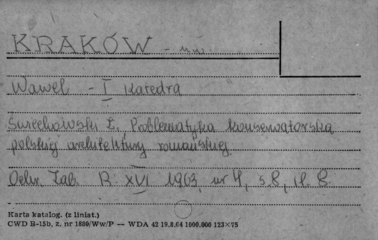 KRAKÓW - m.w.
Wawel - I Katedra
Świechowski Z. Problematyka konserwatorska
polskiej architektury romańskiej
Ochr. Zab. R. XVI 1963, nr 4, s. 8, il. 8
Karta katalog. (z liniat.)
CWD B-15b, z. nr 1880/Ww/P — WDA 42 19.8.64 1000.000 123×75